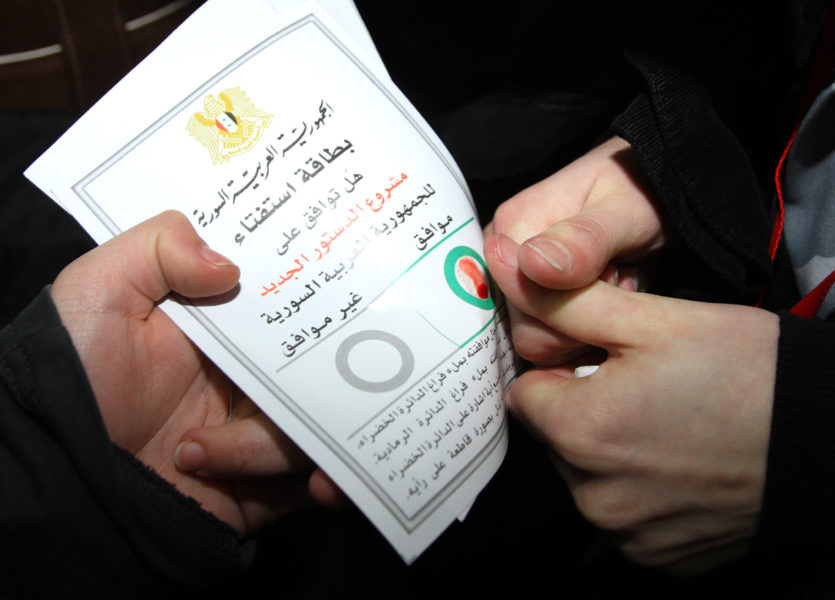 الجمهورية العربية السورية
بطاقة استفتاء
هَل توافق على
مشروع الدستور الجديد
للجمهورية العربية السورية
موافق
غير موافق
موافقته بملء فراغ الدائرة الخضراء،
بملء فراغ الدائرة الرمادية.
اشارة على الدائرة الخضراء
بصورة قاطعة على رأيه.